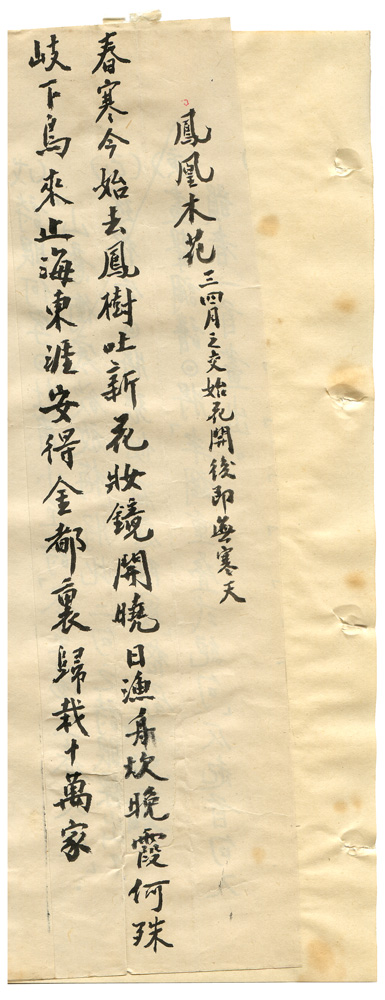 鳳凰木花三四月之交始花開後即無寒天
春寒今始去鳳樹吐新花妝鏡開曉日漁舟炊晚霞何殊
岐下鳥來止海東涯安得金都裏歸栽十萬家